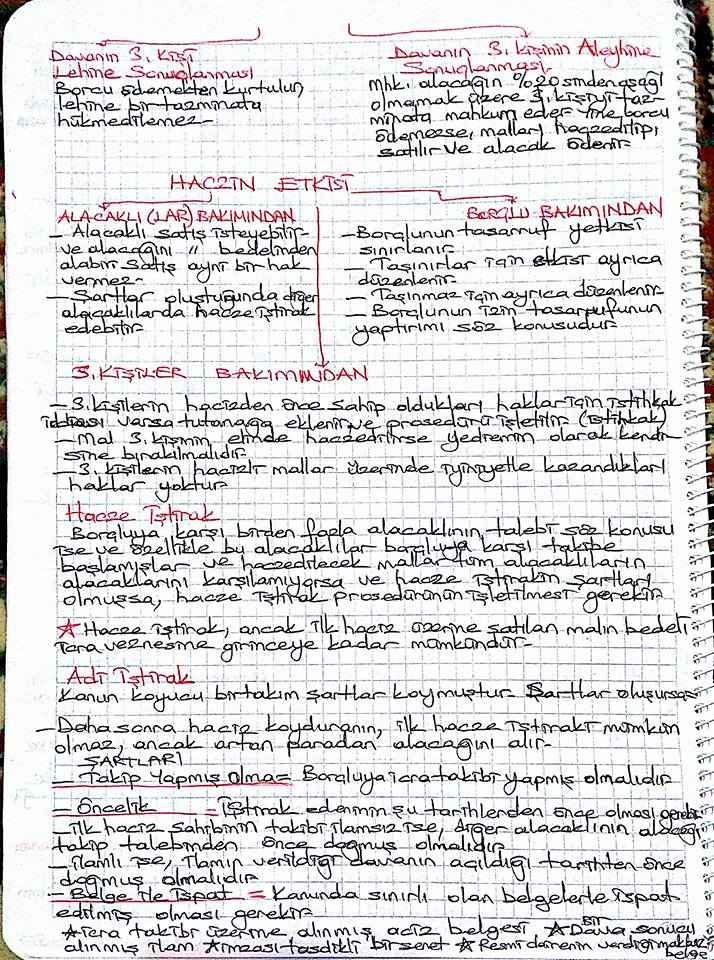 Davanın 3. Kişi
Lehine Sonuçlanması
Borcu ödemekten kurtulur,
lehine bir tazminata
hükmedilemez.
Davanın 3. kişinin Aleyhine
Sonuçlanması
Mhk. alacağın %20 sinden aşağı
olmamak üzere 3. kişiyi taz-
minata mahkum eder. Yine borcu
ödemezse, malları haczedilip,
satılır ve alacak ödenir.
HACZİN ETKİSİ
ALACAKLI (LAR) BAKIMINDAN
— Alacaklı satış isteyebilir
ve alacağını " bedelinden
alabilir satış ayni bir hak
vermez.
— Şartlar oluştuğunda diğer
alacaklılarda hacze iştirak
edebilir.
BORÇLU BAKIMINDAN
— Borçlunun tasarruf yetkisi
sınırlanır.
— Taşınırlar için etkisi ayrıca
düzenlenir.
— Taşınmaz için ayrıca düzenlenir.
— Borçlunun izin tasarrufunun
yaptırımı söz konusudur.
3. KİŞİLER BAKIMINDAN
— 3. kişilerin hacizden önce sahip oldukları haklar için istihkak
iddiası varsa tutanağa eklenir ve prosedürü işletilir. (istihkak)
— Mal 3. kişinin elinde haczedilirse yediemin olarak kendi-
sine bırakılmalıdır.
— 3. kişilerin hacizli mallar üzerinde iyiniyetle kazandıkları
haklar yoktur.
Hacze İştirak
Borçluya karşı birden fazla alacaklının talebi söz konusu
ise ve özellikle bu alacaklılar borçluya karşı takibe
başlamışlar ve haczedilecek mallar tüm alacaklıların
alacaklarını karşılamıyorsa ve hacze iştirakin şartları
olmuşsa, hacze iştirak prosedürünün işletilmesi gerekir.
★ Hacze iştirak, ancak ilk haciz üzerine satılan malın bedeli
icra veznesine girinceye kadar mümkündür.
Adi İştirak
Kanun koyucu birtakım şartlar koymuştur. Şartlar oluşursa
— Daha sonra haciz koyduranın, ilk hacze iştiraki mümkün
olmaz, ancak artan paradan alacağını alır.
ŞARTLARI
— Takip Yapmış Olma = Borçluya icra takibi yapmış olmalıdır
— Öncelik = İştirak edenin şu tarihlerden önce olması gerekir
— İlk haciz sahibinin takibi ilamsız ise, diğer alacaklının alacağı
takip talebinden önce doğmuş olmalıdır
— İlamlı ise, ilamın verildiği davanın açıldığı tarihten önce
doğmuş olmalıdır.
— Belge ile ispat = Kanunda sınırlı olan belgelerle ispat
edilmiş olması gerekir.
★ icra takibi üzerine alınmış aciz belgesi ★ Bir Dava sonucu
alınmış ilam ★ imzası tasdikli bir senet ★ Resmi dairenin verdiği makbuz
belge